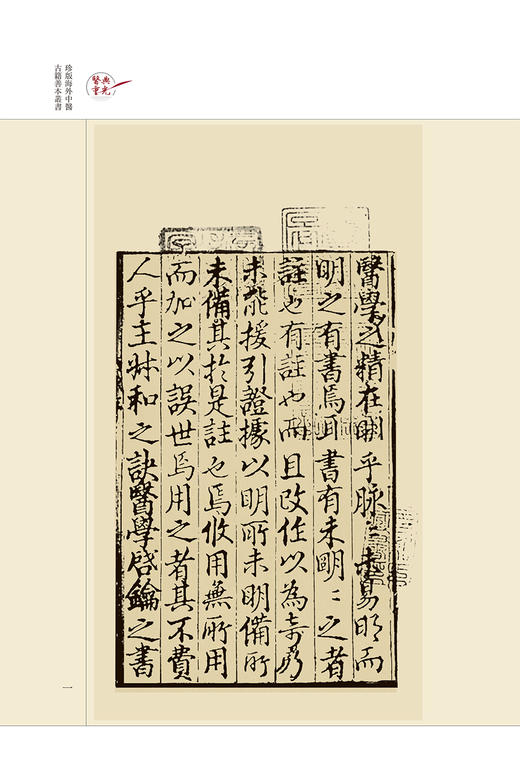 珍版海外中醫
古籍善本叢書
醫典
重光
醫學之精在明乎脉〻未易明而
明之有書焉耳書有未明〻之者
註也有註也而且改作以為奇
未能援引證據以明所未明備所
未備其於是註也焉攸用無所用
而加之以誤世焉用之者其不費
人乎王叔和之訣醫學啓鑰之書
一